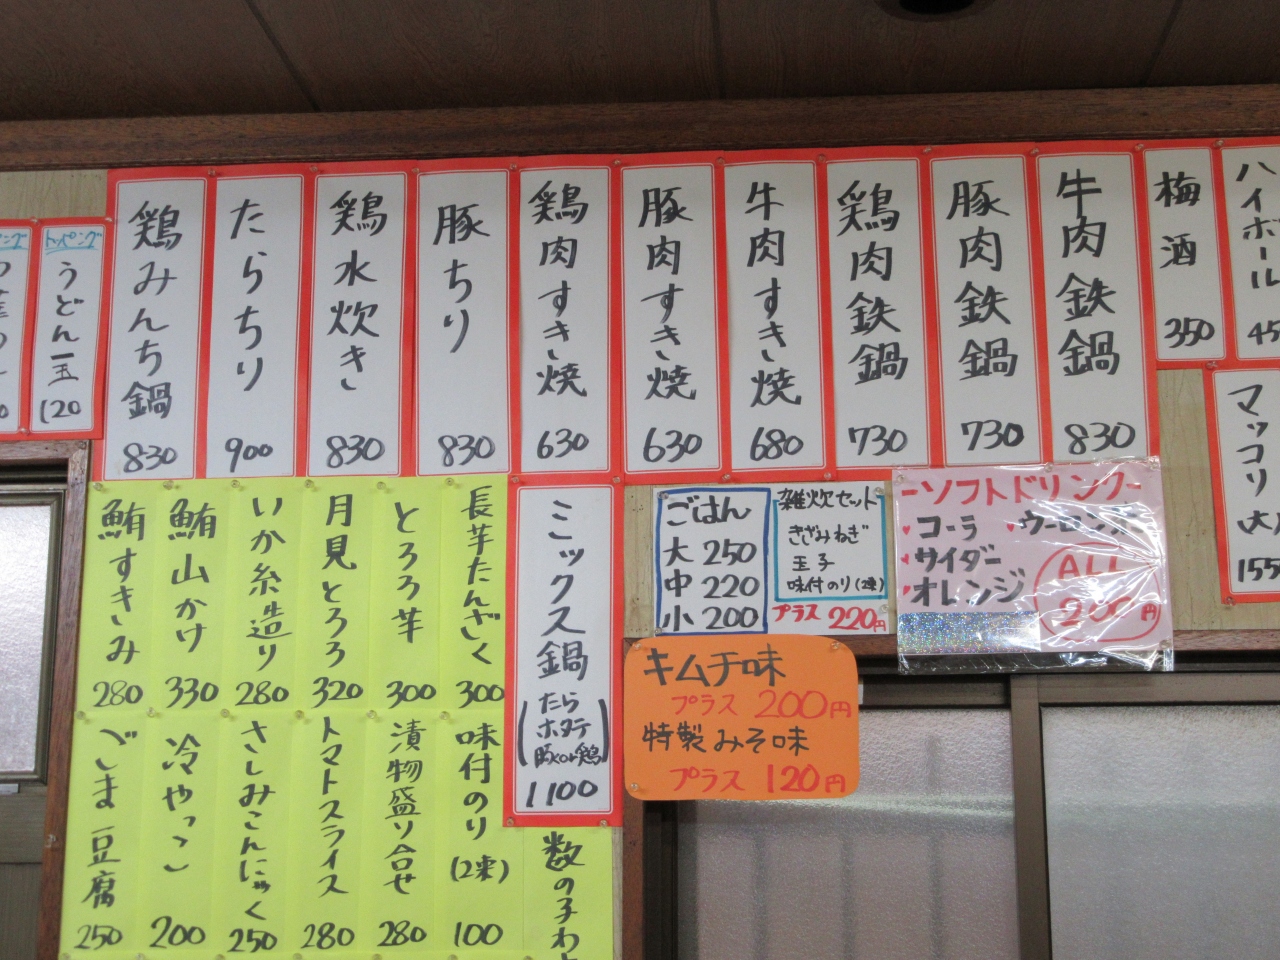 トッピング
うどん一玉
120
鶏みんち鍋
830
たらちり
900
鶏水炊き
830
豚ちり
830
鶏肉すき焼
630
豚肉すき焼
630
牛肉すき焼
680
鶏肉鉄鍋
730
豚肉鉄鍋
730
牛肉鉄鍋
830
梅酒
350
ハイボール
マッコリ
鮪すきみ
280
鮪山かけ
330
いか糸造り
280
月見とろろ
320
とろろ芋
300
長芋たんざく
300
ミックス鍋
(たら
ホタテ
豚or鶏)
1100
ごはん
大 250
中 220
小 200
雑炊セット
きざみねぎ
玉子
味付のり(2束)
プラス 220円
ーソフトドリンクー
コーラ
ウーロン
サイダー
オレンジ
ALL
200円
キムチ味
プラス 200円
特製みそ味
プラス 120円
ごま豆腐
250
冷やっこ
200
さしみこんにゃく
250
トマトスライス
280
漬物盛り合せ
280
味付のり
(2束)
100
数の子わ